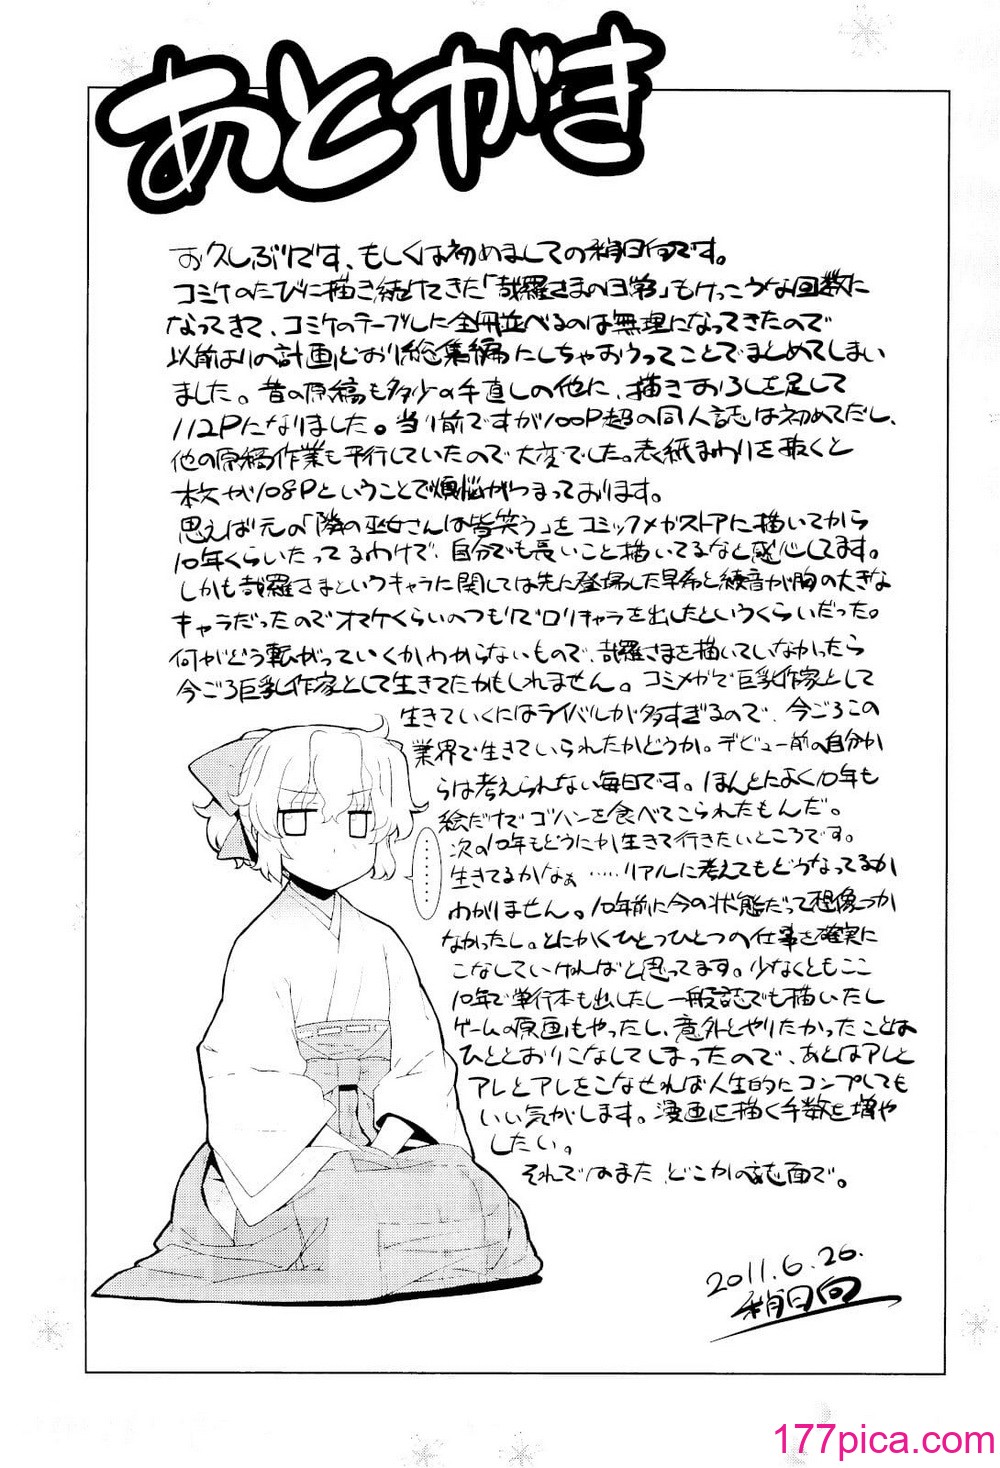 あとがき
お久しぶりです、もしくは初めましての稍日向です。
コミケのたびに描き続けてきた「哉羅さまの日常」もけっこうな回数に
なってきて、コミケのテーブルに全冊並べるのは無理になってきたので
以前よりの計画どおり総集編にしちゃおうってことでまとめてしまい
ました。昔の原稿も多少の手直しの他に、描きおろしを足して
112Pになりました。当り前ですが100P超の同人誌は初めてだし、
他の原稿作業も平行していたので大変でした。表紙まわりを抜くと
本文が108Pということで煩悩がつまっております。
思えば元の「隣の巫女さんは皆笑う」をコミックメガストアに描いてから
10年くらいたってるわけで、自分でも長いこと描いてるなと感心してます。
しかも哉羅さまというキャラに関しては先に登場した早希と綾音が胸の大きな
キャラだったのでオマケくらいのつもりでロリキャラを出したというくらいだった。
何がどう転がっていくかわからないもので、哉羅さまを描いていなかったら
今ごろ巨乳作家として生きてたかもしれません。コミメガで巨乳作家として
生きていくにはライバルが多すぎるので、今ごろこの
業界で生きていられたかどうか。デビュー前の自分か
らは考えられない毎日です。ほんとによく10年も
絵だけでゴハンを食べてこられたもんだ。
次の10年もどうにか生きて行きたいところです。
生きてるかなぁ……リアルに考えてもどうなってるか
わかりません。10年前に今の状態だって想像つか
なかったし。とにかくひとつひとつの仕事を確実に
こなしていければと思ってます。少なくともここ
10年で単行本も出したし一般誌でも描いたし
ゲームの原画もやったし、意外とやりたかったことは
ひととおりこなしてしまったので、あとはアレと
アレとアレをこなせれば人生的にコンプしても
いい気がします。漫画に描く手数を増や
したい。
それではまた どこかの誌面で。
……
2011.6.26.
稍日向
177pica.com